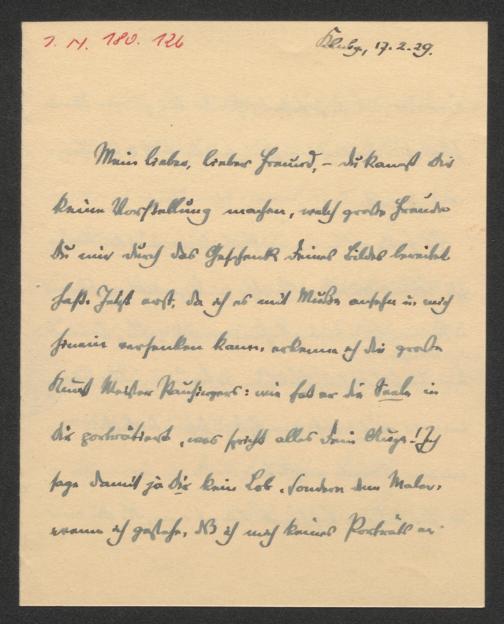 I. N. 180.126
Klbg., 17.2.29.
Mein lieber, lieber Freund, – Du kannst Dir
keine Vorstellung machen, welch große Freude
Du mir durch das Geschenk Deines Bildes bereitet
hast. Jetzt erst, da ich es mit Muße ansehn u. mich
hinein versenken kann, erkenne ich die große
Kunst Meister Pausingers: wie hat er die Seele in
Dir porträtiert, was spricht alles Dein Auge! Ich
sage damit ja Dir kein Lob, sondern dem Maler,
wenn ich gestehe, daß ich mich keines Porträts er-